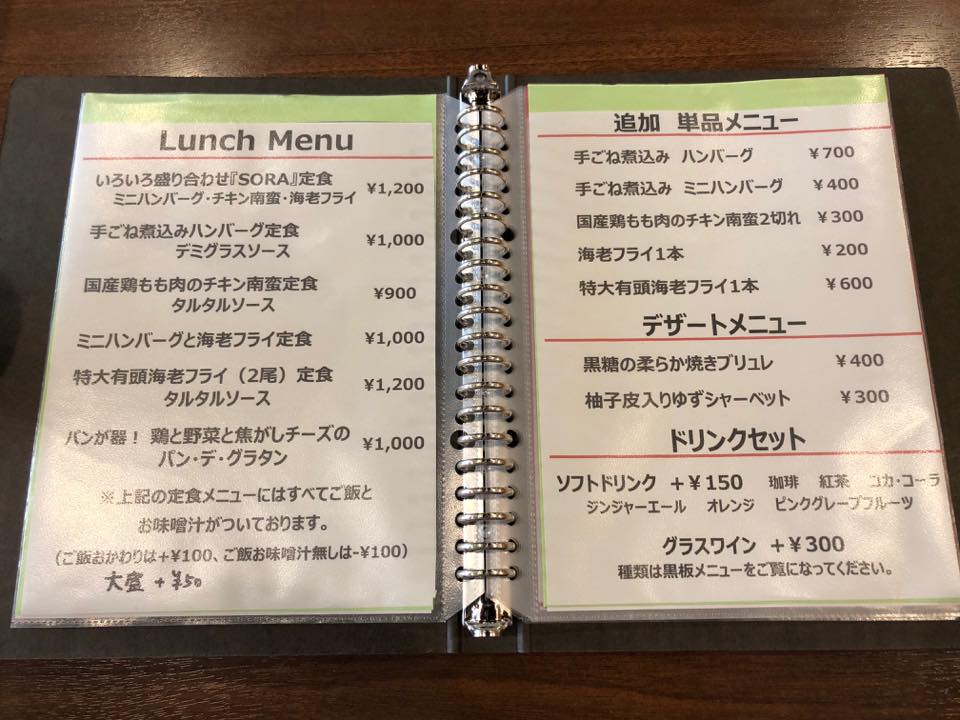 Lunch Menu
いろいろ盛り合わせ『SORA』定食
ミニハンバーグ・チキン南蛮・海老フライ ¥1,200
手ごね煮込みハンバーグ定食
デミグラスソース ¥1,000
国産鶏もも肉のチキン南蛮定食
タルタルソース ¥900
ミニハンバーグと海老フライ定食 ¥1,000
特大有頭海老フライ（2尾）定食
タルタルソース ¥1,200
パンが器！ 鶏と野菜と焦がしチーズの
パン・デ・グラタン ¥1,000
※上記の定食メニューにはすべてご飯と
お味噌汁がついております。
（ご飯おかわりは+¥100、ご飯お味噌汁無しは-¥100）
大盛 +¥50
追加 単品メニュー
手ごね煮込み ハンバーグ ￥700
手ごね煮込み ミニハンバーグ ￥400
国産鶏もも肉のチキン南蛮2切れ ￥300
海老フライ1本 ￥200
特大有頭海老フライ1本 ￥600
デザートメニュー
黒糖の柔らか焼きブリュレ ￥400
柚子皮入りゆずシャーベット ￥300
ドリンクセット
ソフトドリンク ＋￥150 珈琲 紅茶 コカ・コーラ
ジンジャーエール オレンジ ピンクグレープフルーツ
グラスワイン ＋￥300
種類は黒板メニューをご覧になってください。